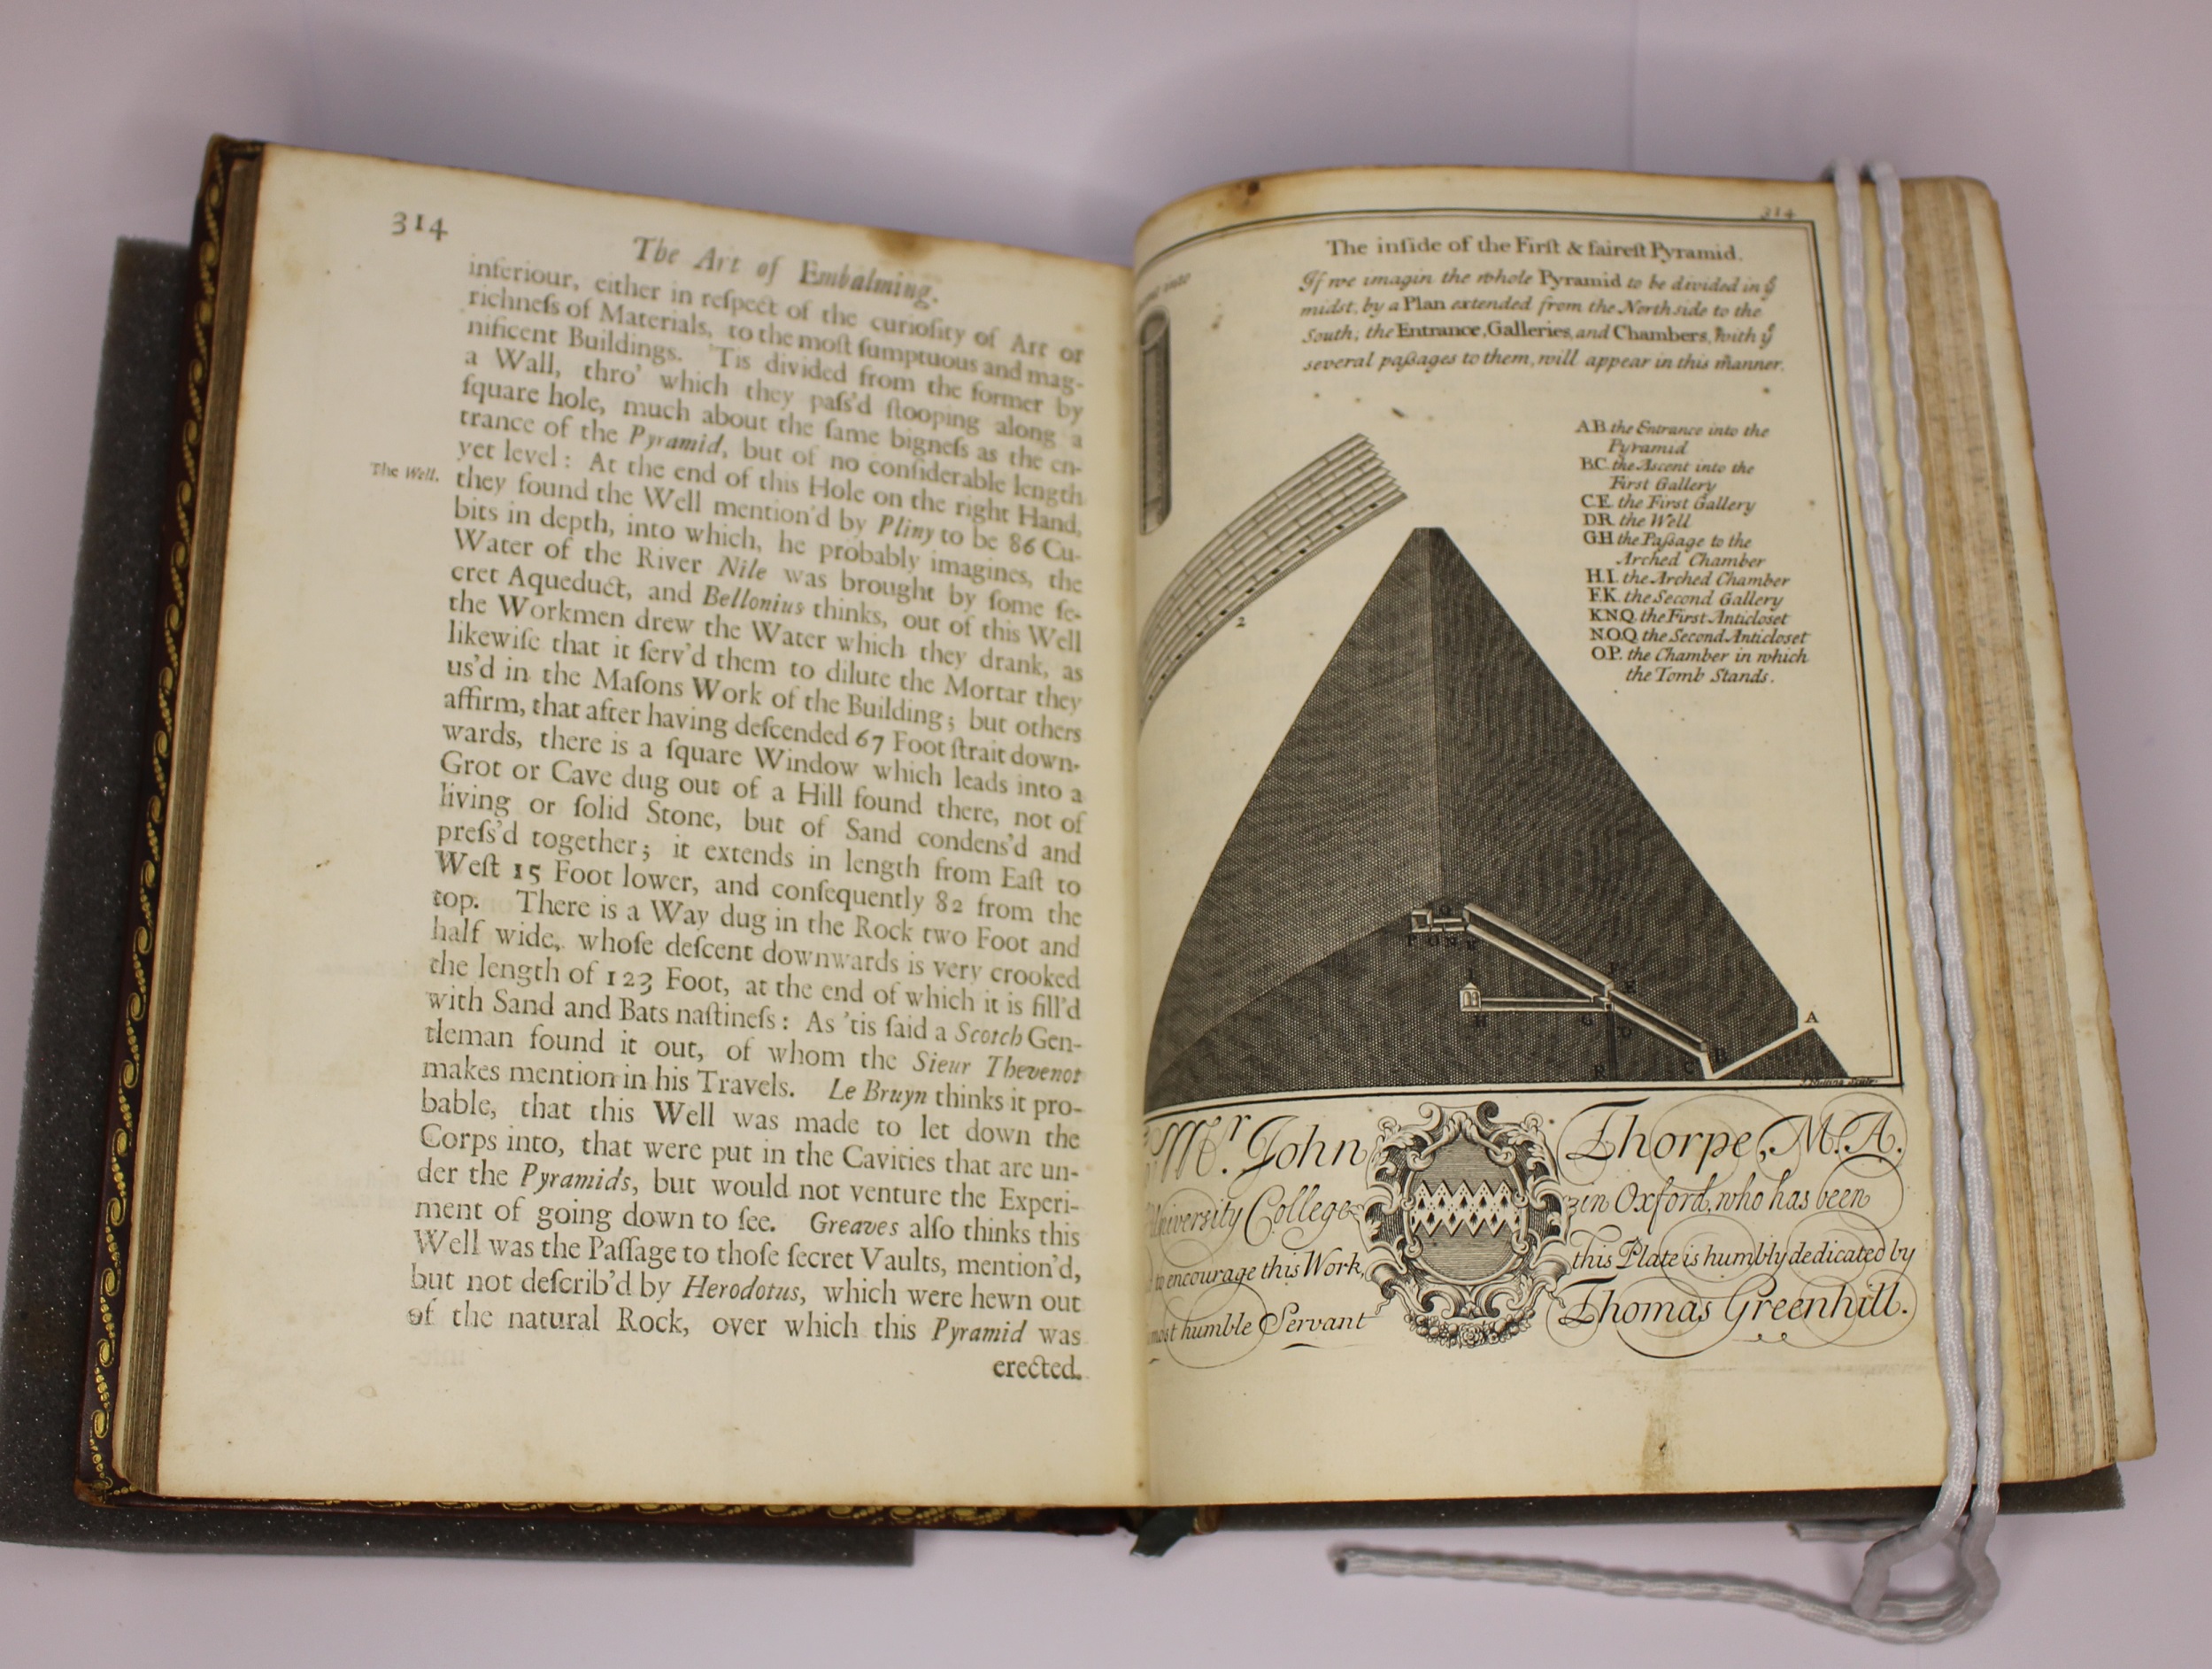 314
The Art of Embalming.
inferiour, either in reſpect of the curioſity of Art or
richneſs of Materials, to the moſt ſumptuous and mag-
nificent Buildings. 'Tis divided from the former by
a Wall, thro' which they paſs'd ſtooping along a
ſquare hole, much about the ſame bigneſs as the en-
trance of the Pyramid, but of no conſiderable length
yet level: At the end of this Hole on the right Hand,
The Well.
they found the Well mention'd by Pliny to be 86 Cu-
bits in depth, into which, he probably imagines, the
Water of the River Nile was brought by ſome ſe-
cret Aqueduct, and Bellonius thinks, out of this Well
the Workmen drew the Water which they drank, as
likewiſe that it ſerv'd them to dilute the Mortar they
us'd in the Maſons Work of the Building; but others
affirm, that after having deſcended 67 Foot ſtrait down-
wards, there is a ſquare Window which leads into a
Grot or Cave dug out of a Hill found there, not of
living or ſolid Stone, but of Sand condens'd and
preſs'd together; it extends in length from Eaſt to
Weſt 15 Foot lower, and conſequently 82 from the
top. There is a Way dug in the Rock two Foot and
half wide, whoſe deſcent downwards is very crooked
the length of 123 Foot, at the end of which it is fill'd
with Sand and Bats naſtineſs: As 'tis ſaid a Scotch Gen-
tleman found it out, of whom the Sieur Thevenot
makes mention in his Travels. Le Bruyn thinks it pro-
bable, that this Well was made to let down the
Corps into, that were put in the Cavities that are un-
der the Pyramids, but would not venture the Experi-
ment of going down to ſee. Greaves alſo thinks this
Well was the Paſſage to thoſe ſecret Vaults, mention'd,
but not deſcrib'd by Herodotus, which were hewn out
of the natural Rock, over which this Pyramid was
erected.
314
The inſide of the Firſt & faireſt Pyramid.
If we imagin the whole Pyramid to be divided in yͤ
midst, by a Plan extended from the North side to the
South; the Entrance, Galleries, and Chambers, with yͤ
several paßages to them, will appear in this manner.
into
A.B. the Entrance into the
Pyramid
B.C. the Ascent into the
First Gallery
C.E. the First Gallery
D.R. the Well
G.H. the Paßage to the
Arched Chamber
H.I. the Arched Chamber
F.K. the Second Gallery
K.N.Q. the First Anticloset
N.O.Q. the Second Anticloset
O.P. the Chamber in which
the Tomb Stands.
2
Q
P O N K
F
E
I
H
G
D
A
B
C
R
Mr. John Thorpe, M.A.
University College in Oxford, who has been
to encourage this Work, this Plate is humbly dedicated by
most humble Servant Thomas Greenhill.